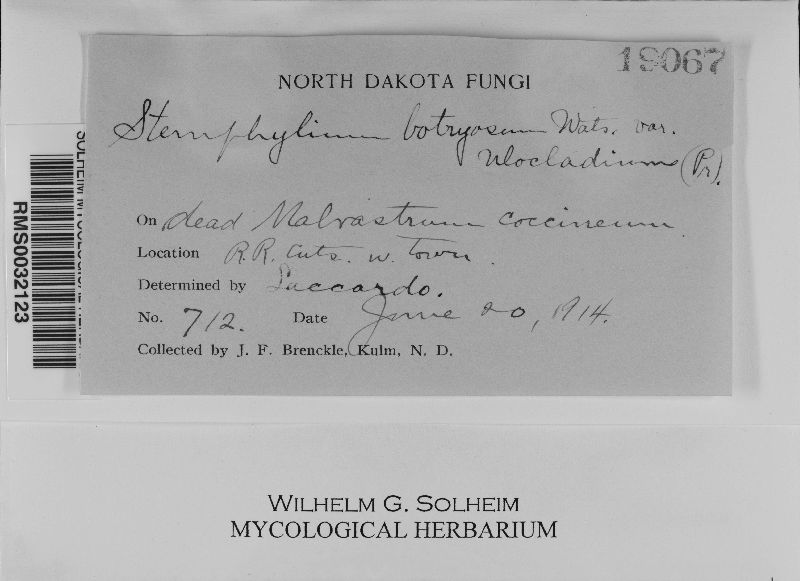 19067
NORTH DAKOTA FUNGI
Stemphylium botryosum Wats. var.
Ulocladium (Pr).
On dead Malvastrum coccineum.
Location R.R. Cuts. w. Town.
Determined by Saccardo.
No. 712. Date June 20, 1914.
Collected by J. F. Brenckle, Kulm, N. D.
RMS0032123
WILHELM G. SOLHEIM
MYCOLOGICAL HERBARIUM